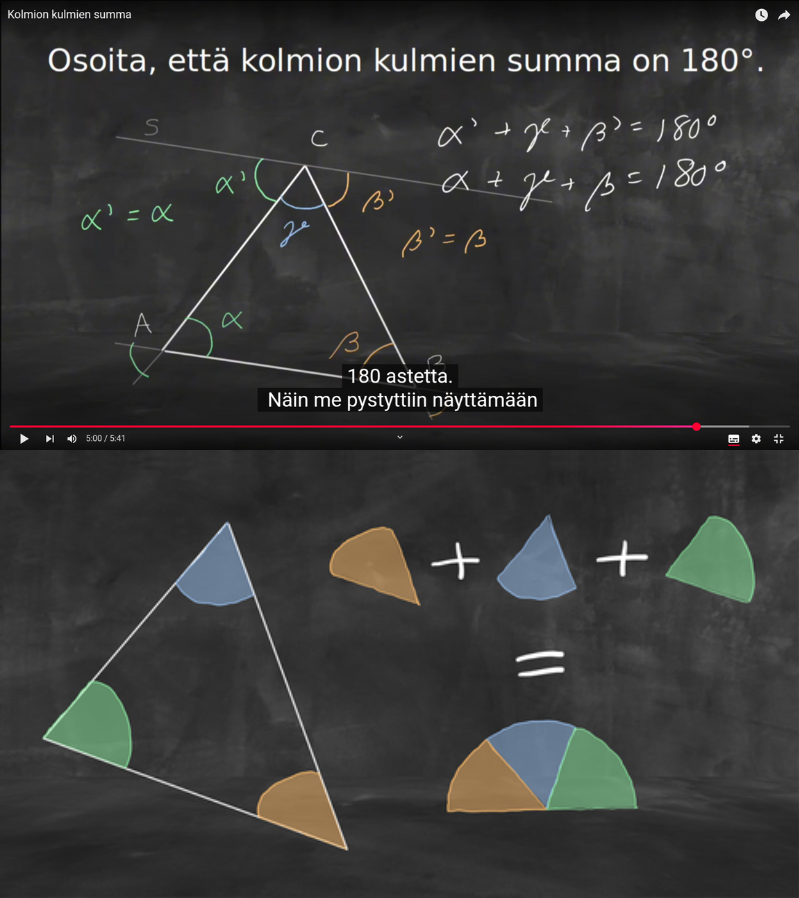 Kolmion kulmien summa
Osoita, että kolmion kulmien summa on 180°.
S
C
α' + γ + β' = 180°
α + γ + β = 180°
α'
β'
α' = α
γ
β' = β
A
α
β
B
180 astetta.
Näin me pystyttiin näyttämään
5:00 / 5:41
+
+
=